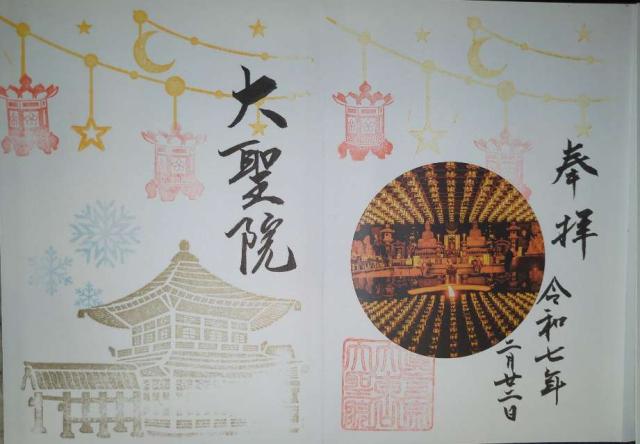 奉拝
令和七年
二月廿二日
大聖院